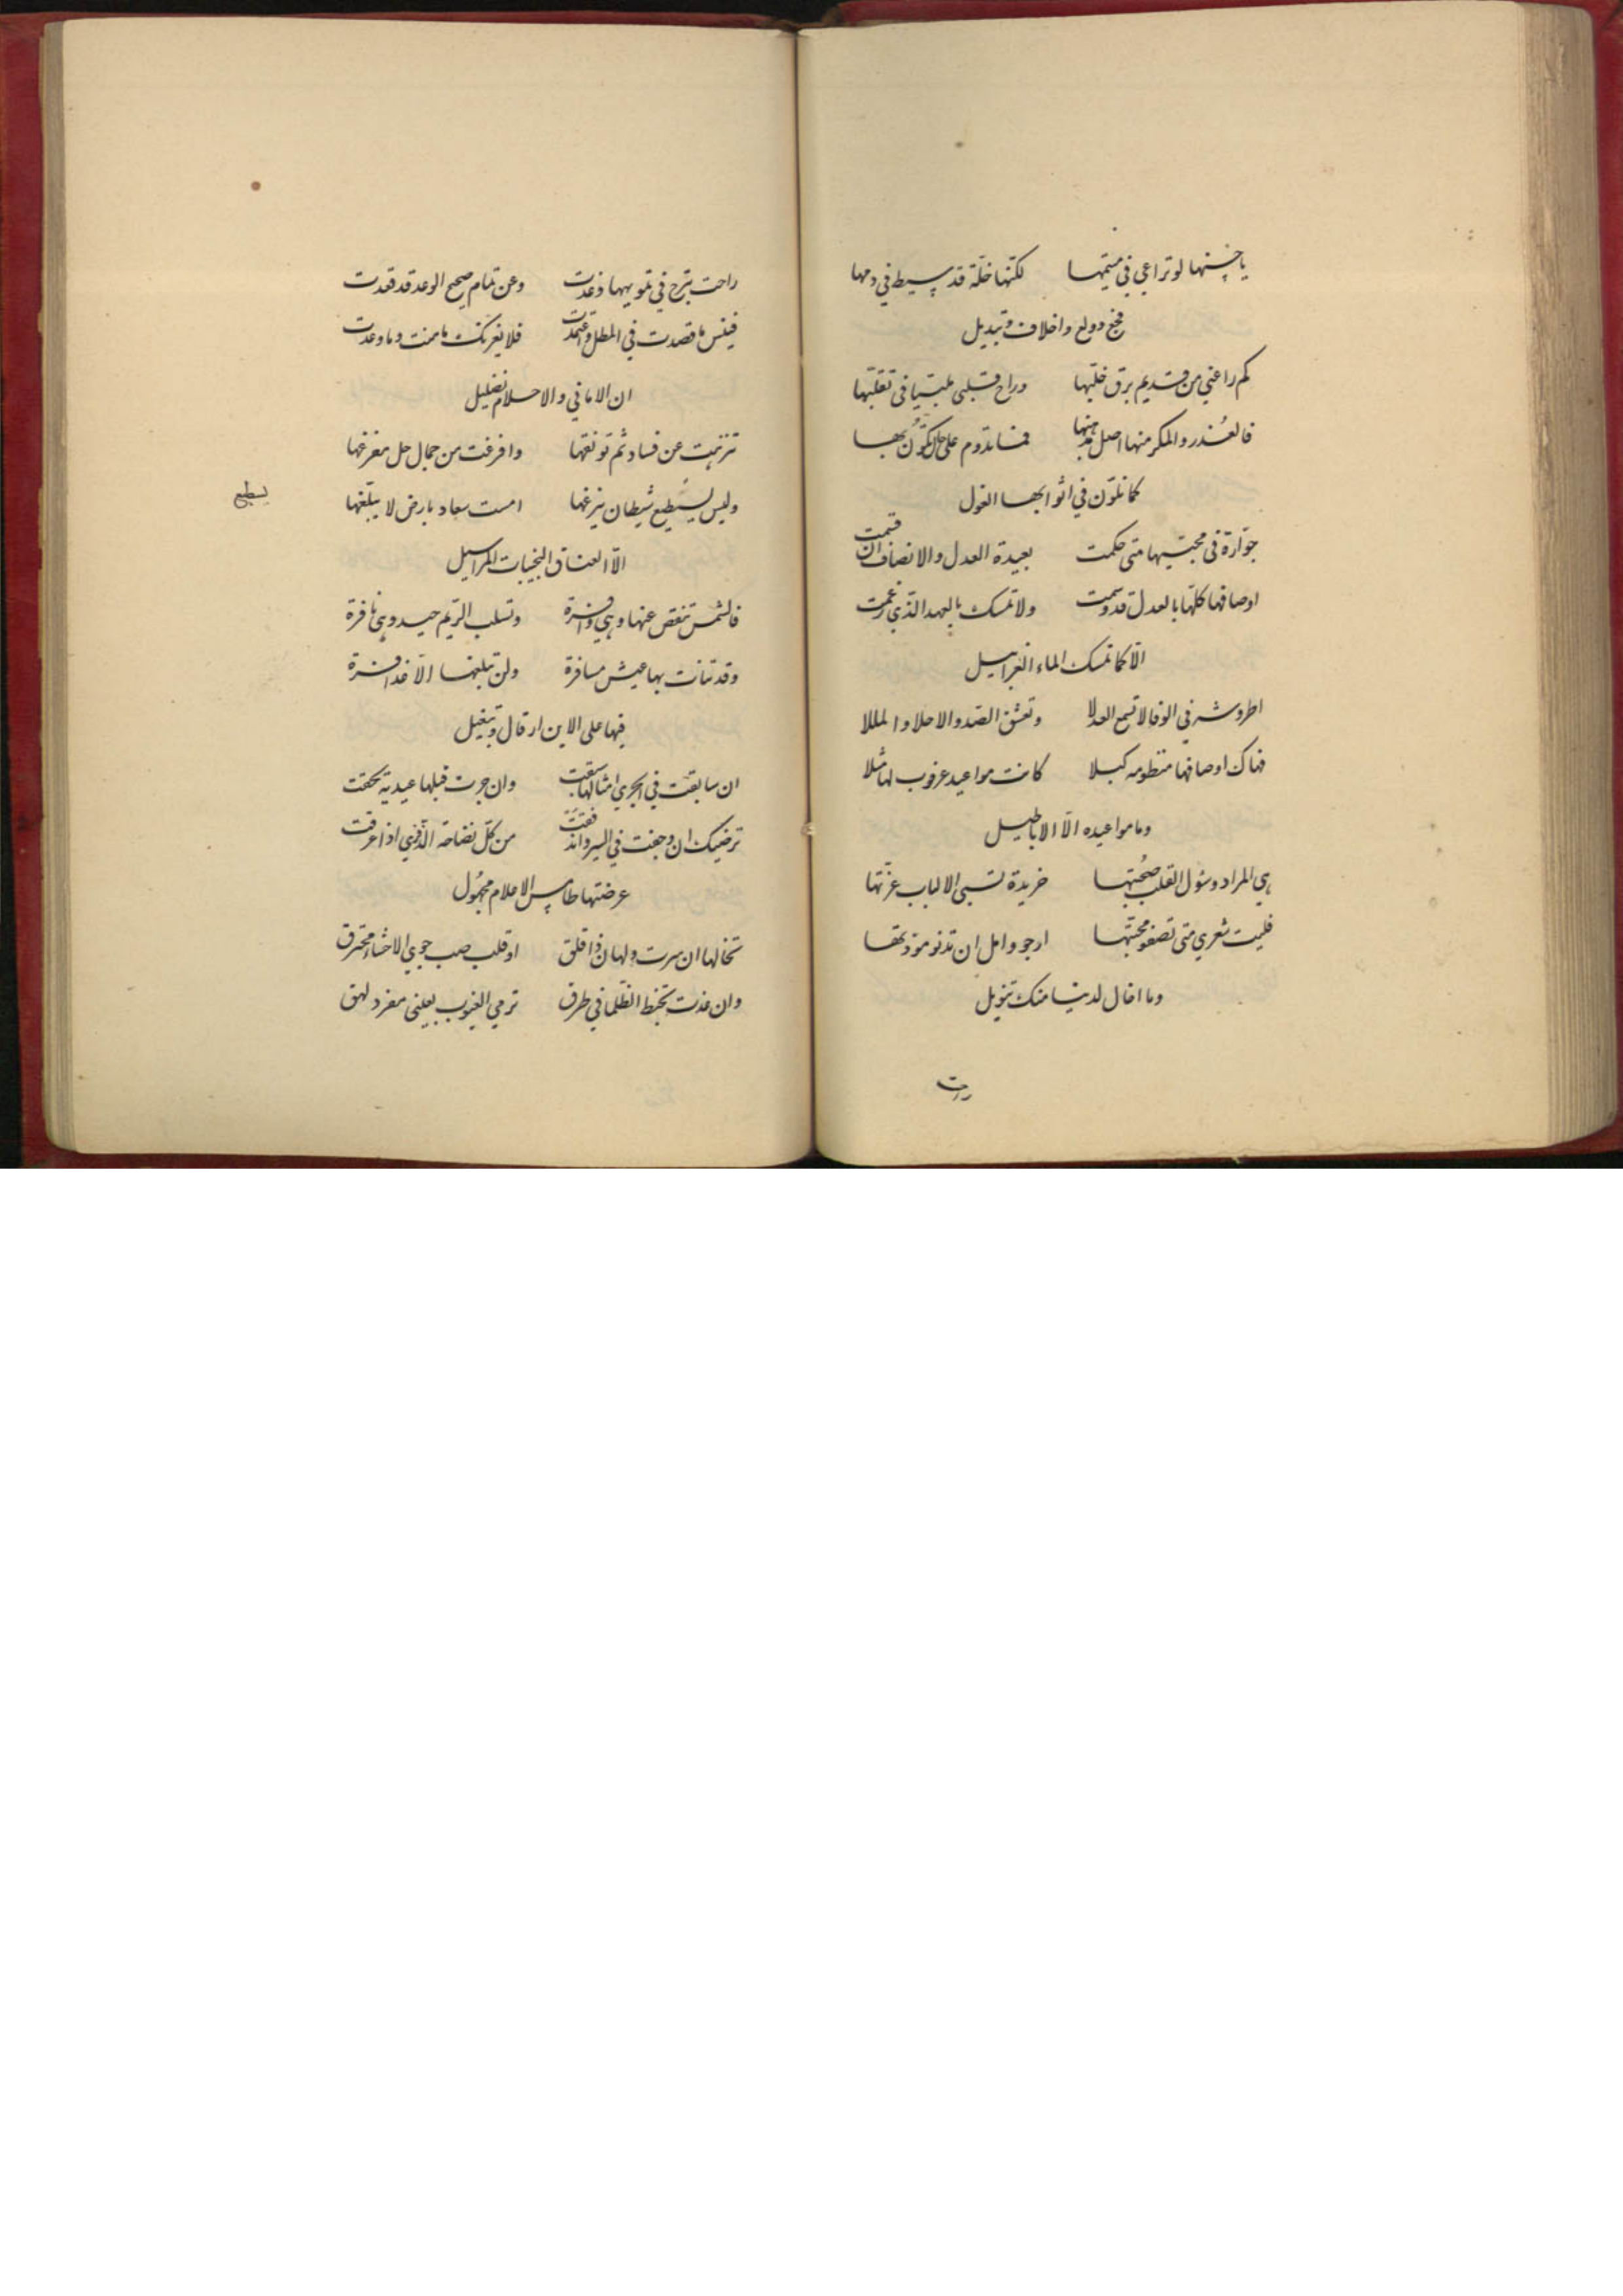 يا حسنها لو تراعي في متيمها لكنها خلة قد سيط في دمها
فجع وولع واخلاف وتبديل
كم راعني من قديم برق خلبها وراح قلبي في تقلبها
فالغدر والمكر منها اصل مذهبها فما تدوم على حال تكون بها
كما تلون في اثوابها الغول
جوارة في محبيها متى حكمت بعيدة العدل والانصاف ان قسمت
اوصافها كلها بالعدل قد وسمت ولا تمسك بالعهد الذي زعمت
الا كما تمسك الماء الغرابيل
في الوفا لا تسمع العذلا وتعشق الصد والاخلاد والمللا
فهاك اوصافها منظومه كملا كانت مواعيد عرقوب لها مثلا
وما مواعيده الا الاباطيل
هي المراد وسئول القلب صحبتها خريدة تسبي الالباب عزتها
فليت شعري متى تصفو محبتها ارجو وامل ان تدنو مودتها
وما اخال لدينا منك تنويل
راحت
راحت تبرج في تمويهها وغدت وعن تمام صحيح الوعد قد قعدت
فبئس ما قصدت في المطل واعتمدت فلا يغرنك ما منت وما وعدت
ان الاماني والاحلام تضليل
تنزهت عن فساد ثم وافرغت من جمال حل مفرغها
وليس يسطيع شيطان ينزغها امست سعاد بارض لا يبلغها
يسطيع
الا العتاق النجيبات المراسيل
فالشمس تنقص عنها وهي وافرة وتسلب الريم جيد وهي نافرة
وقد تنات بها عيش مسافرة ولن تبلغها الا عذافرة
فيها على الاين ارقال وتبغيل
ان سابقت في الجري امثالها سبقت وان جرت قبلها عيدية لحقت
ترضيك ان وجفت في السير واندفعت من كل نضاخة الذفرى اذا عرقت
عرضتها طامس الاعلام مجهول
تخالها ان سرت ولهان ذا قلق او قلب صب جوي الاحشاء محترق
وان غدت تخبط الظلما في طرق ترمي الغيوب بعيني مفرد لهق